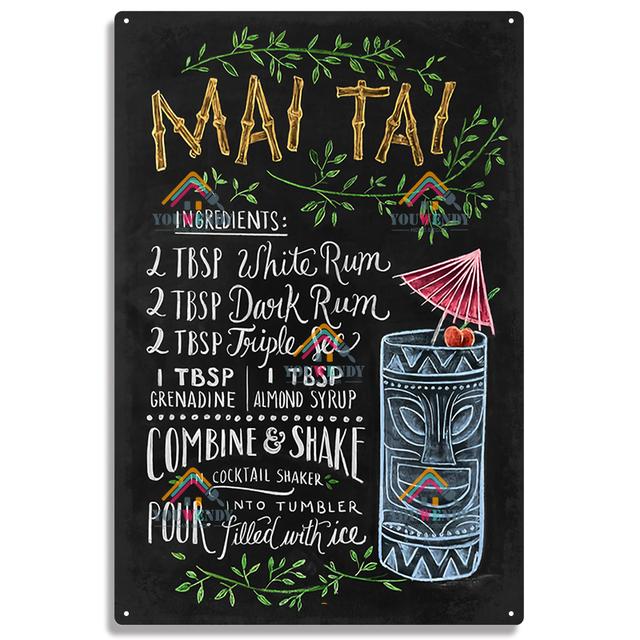 MAI TAI
INGREDIENTS:
2 TBSP White Rum
2 TBSP Dark Rum
2 TBSP Triple Sec
1 TBSP GRENADINE | 1 TBSP ALMOND SYRUP
COMBINE & SHAKE
IN COCKTAIL SHAKER
POUR INTO TUMBLER
filled with ice
YOUWENDY
YOUWENDY
YOUWENDY
YOUWENDY
YOUWENDY